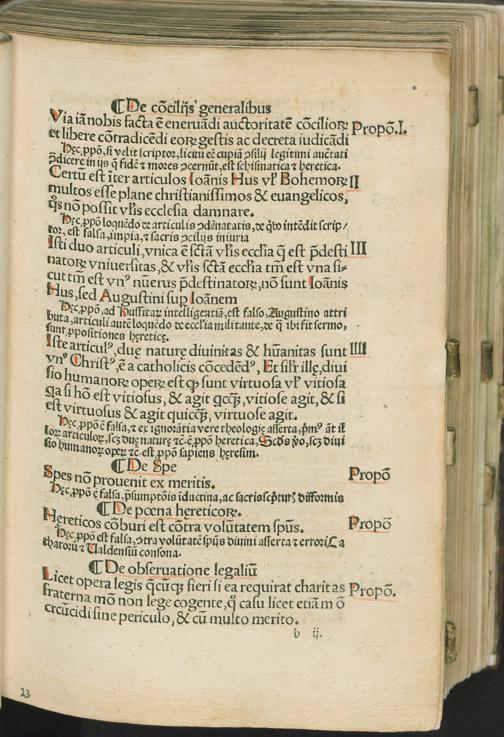 ¶ De cõcilijs generalibus
Via iã nobis facta ẽ eneruãdi auctoritatẽ cõcilioꝝ Propõ.I.
et libere cõtradicẽdi eoꝝ gestis ac decreta iudicãdi
Hęc ꝓpõ, si velit scriptor, licitũ eẽ cupiã ꝯsilij legitimi auctati
ꝯdicere in ijs q̃ fidẽ ⁊ mores ꝯcernũt, est schismatica ⁊ heretica.
Certũ est iter articulos Ioãnis Hus vl' Bohemoꝝ II
multos esse plane christianissimos & euangelicos,
q̃s nõ possit vl'is ecclesia damnare.
Hęc ꝓpõ loquẽdo de articulis ꝯdẽnatis, de q̃bo intẽdit scrip/
tor, est falsa, impia, ⁊ sacris ꝯcilijs iniuria
Isti duo articuli, vnica ẽ sctã vl'is eccl'ia q̃ est p̃desti III
natoꝝ vniuersitas, & vl'is sctã eccl'ia tm̃ est vna si-
cut tm̃ est vnꝰ nũerus p̃destinatoꝝ, nõ sunt Ioãnis
Hus, sed Augustini sup Ioãnem
Hęc ꝓpõ, ad Hussitaꝝ intelligentiã, est falso, Augustino attri
buta, articuli autẽ loquẽdo de eccl'ia militante, de q̃ ibi fit sermo,
sunt ꝓpositiones hereticę.
Iste articulꝰ, duę naturę diuinitas & hũanitas sunt IIII
vnꝰ Christꝰ, ẽ a catholicis cõcedẽdꝰ, Et sil'r ille, diui
sio humanoꝝ operũ est ꝙ sunt virtuosa vl' vitiosa
ga si hõ est vitiosus, & agit qcꝗ̃, vitiose agit, & si
est virtuosus & agit quicꝗ̃, virtuose agit.
Hęc ꝓpõ ẽ falsa, ⁊ ex ignorãtia vere theologię asserta, p̃mꝰ añt il
loꝝ articuloꝝ, scꝫ duę naturę ⁊c̃ ẽ, ꝓpõ heretica, Scđs vo, scꝫ diui
sio humanoꝝ opeꝝ ⁊c̃ est, ꝓpõ sapiens hęresim.
¶ De Spe
Spes nõ prouenit ex meritis. Propõ
Hęc ꝓpõ ẽ falsa, p̃sumptõis iductiua, ac sacris scpturꝭ difformis
¶ De pœna hereticoꝝ.
Hereticos cõburi est cõtra volũtatem spũs. Propõ
Hęc ꝓpõ est falsa, ꝯtra volũtatẽ spũs diuini asserta ⁊ errori Ca
tharorũ ⁊ Ualdensiũ consona.
¶ De obseruatione legaliũ
Licet opera legis q̃cũcꝗ fieri si ea requirat charitas Propõ.
fraterna mõ non lege cogente, q̃ casu licet etiã m õ
creũcidi sine periculo, & cũ multo merito.
b ij.
23